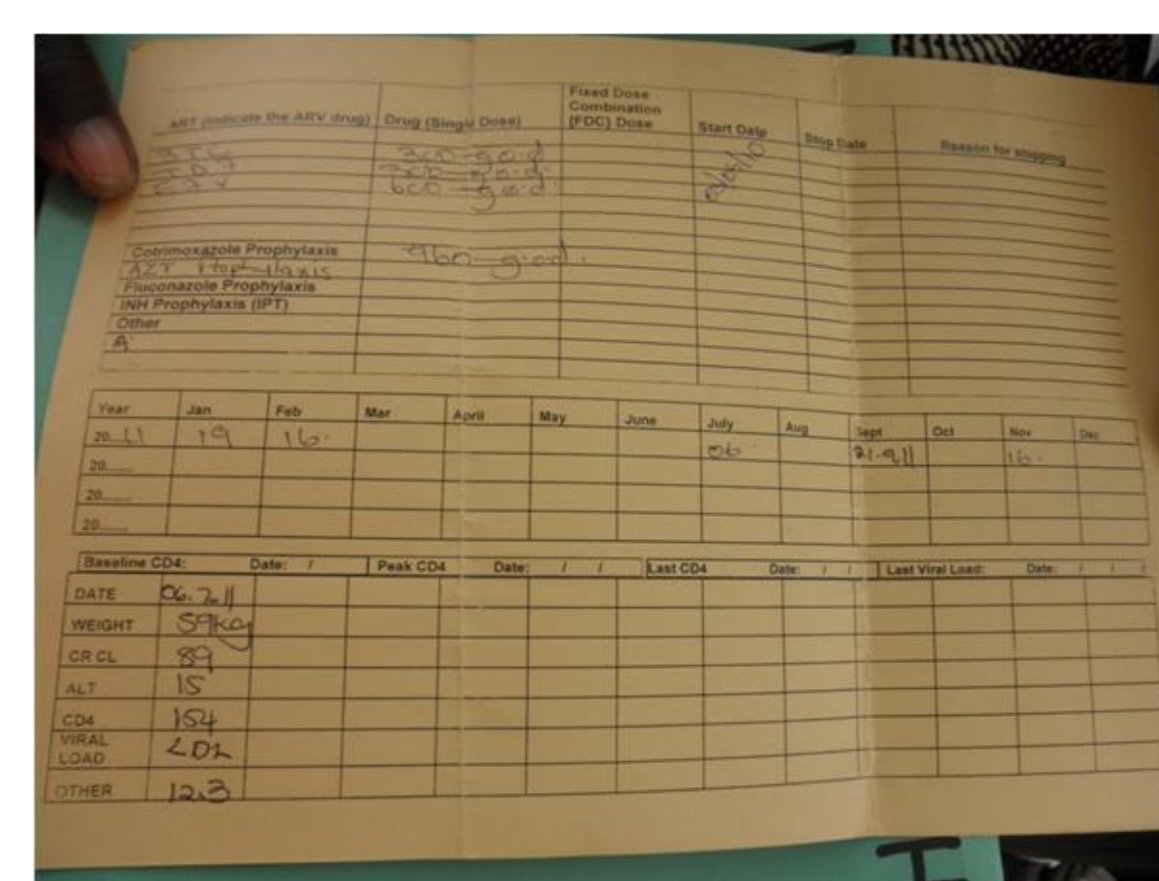 ART (indicate the ARV drug) Drug (Single Dose) Fixed Dose Combination [FDC] Dose Start Date Stop Date Reason for stopping
3TC 300 g.o.d
TDF 300 g.o.d.
EFV 600 g.o.d.
Cotrimoxazole Prophylaxis 960 g.o.d.
AZT Prophylaxis
Fluconazole Prophylaxis
INH Prophylaxis (IPT)
Other
A
Year Jan Feb Mar April May June July Aug Sept Oct Nov Dec
20 11 19 16. 06. 21.9.11 16.
20.......
20.......
20.......
Baseline CD4: Date: / Peak CD4 Date: / / Last CD4 Date: / / Last Viral Load: Date: / / /
DATE 06.7.11
WEIGHT 59kg
CR CL 89
ALT 15
CD4 154
VIRAL LOAD LDL
OTHER 12.3